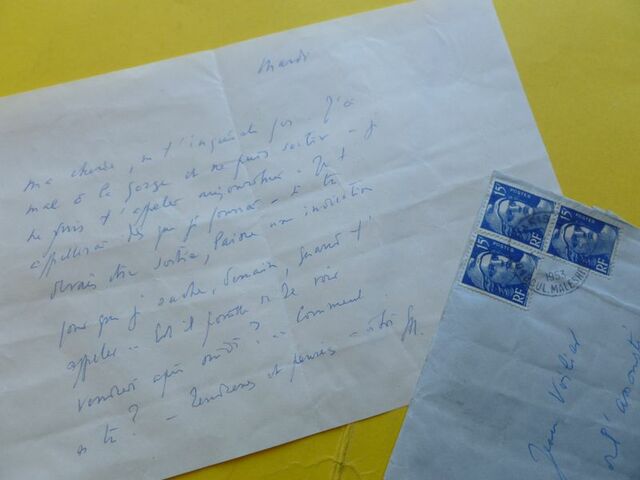 Mardi
ma chérie, ne t'inquiète pas. J'ai
mal à la gorge et ne puis sortir - je
ne puis t'appeler aujourd'hui - Je t'
appellerai dès que je pourrai - si tu
devais être sortie, laisse une indication
pour que je sache, demain, quand t'
appeler - Est-il possible de te voir
vendredi après midi? - Comment
es tu? - Tendresses et pensées - à toi M.
15F POSTES RF
15F POSTES RF
15F POSTES RF
1953
MALESH
Jean Voilier
de l'assomption